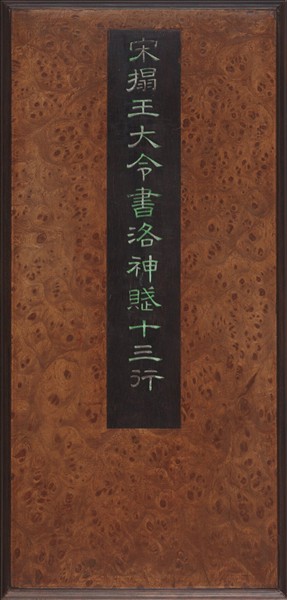 宋搨王大令書洛神賦十三行